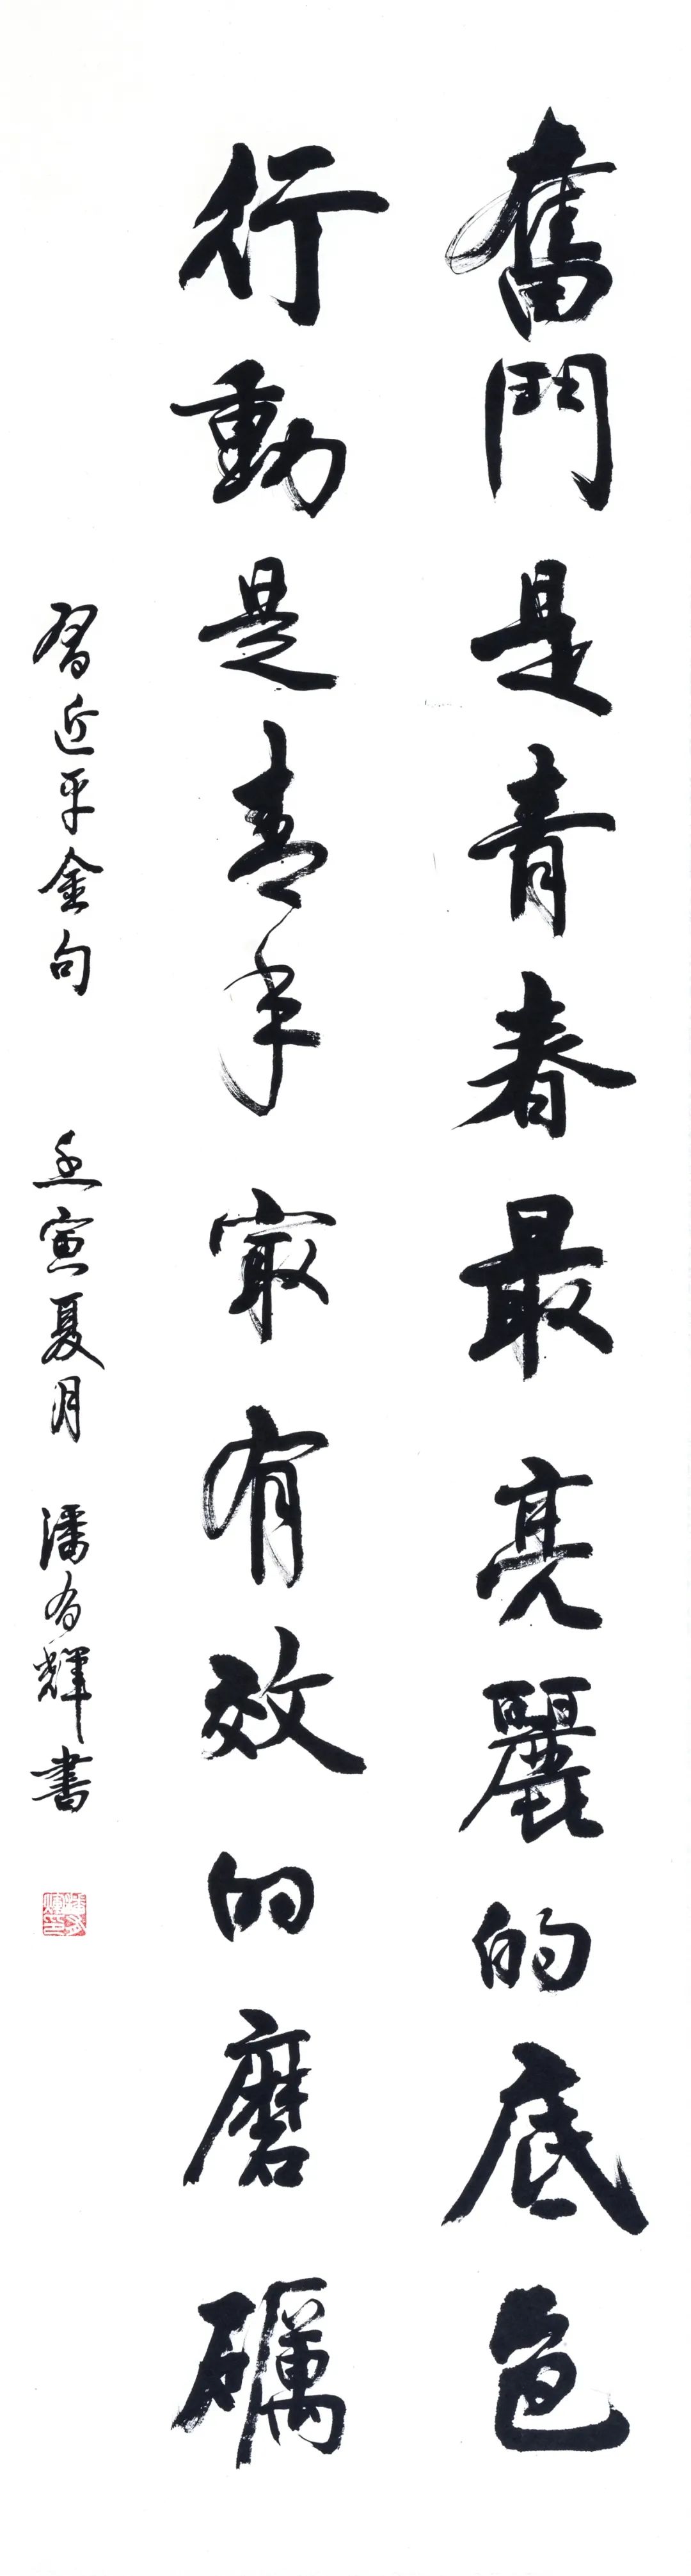 奮鬥是青春最亮麗的底色
行動是青年冣有效的磨礪
習近平金句 壬寅夏月 潘有輝書